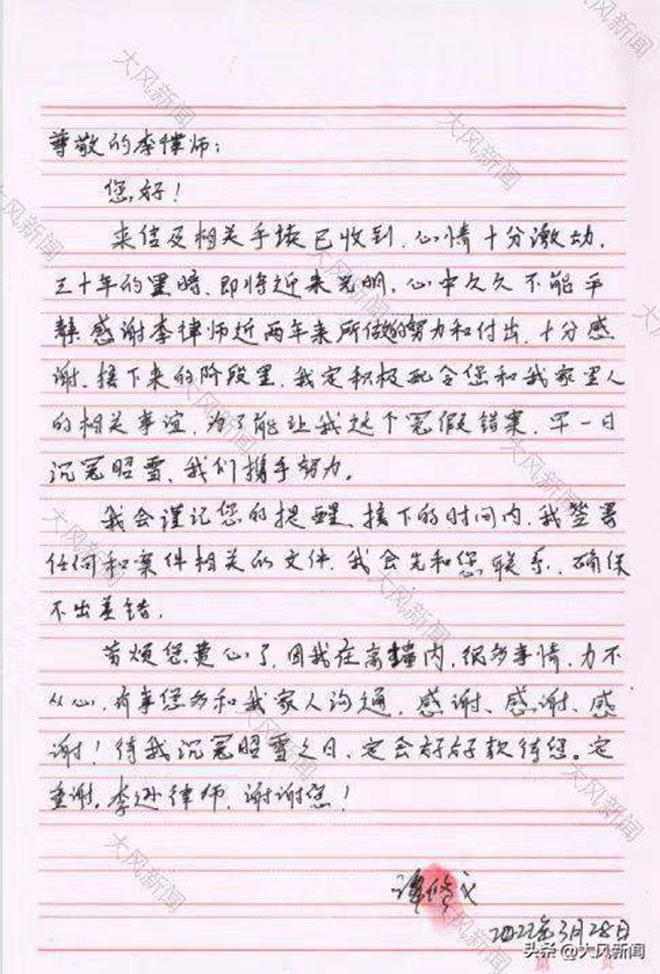 尊敬的李律师：
您好！
来信及相关手续已收到，心情十分激动，
三十年的黑暗，即将迎来光明，心中久久不能平
静。感谢李律师近两年来所做的努力和付出，十分感
谢。接下来的阶段里，我定积极配合您和我家里人
的相关事谊，为了能让我这个冤假错案，早一日
沉冤昭雪，我们携手努力。
我会谨记您的提醒，接下的时间内，我签署
任何和案件相关的文件，我会先和您联系，确保
不出差错。
劳烦您费心了，因我在高墙内，很多事情，力不
从心，有事您多和我家人沟通，感谢、感谢、感
谢！待我沉冤昭雪之日，定会好好款待您。定
重谢。李逊律师，谢谢您！
谭修义
2022年3月28日
头条@大风新闻
大风新闻
大风新闻
大风新闻
大风新闻
大风新闻
大风新闻
大风新闻
大风新闻
大风新闻
大风新闻
大风新闻
大风新闻